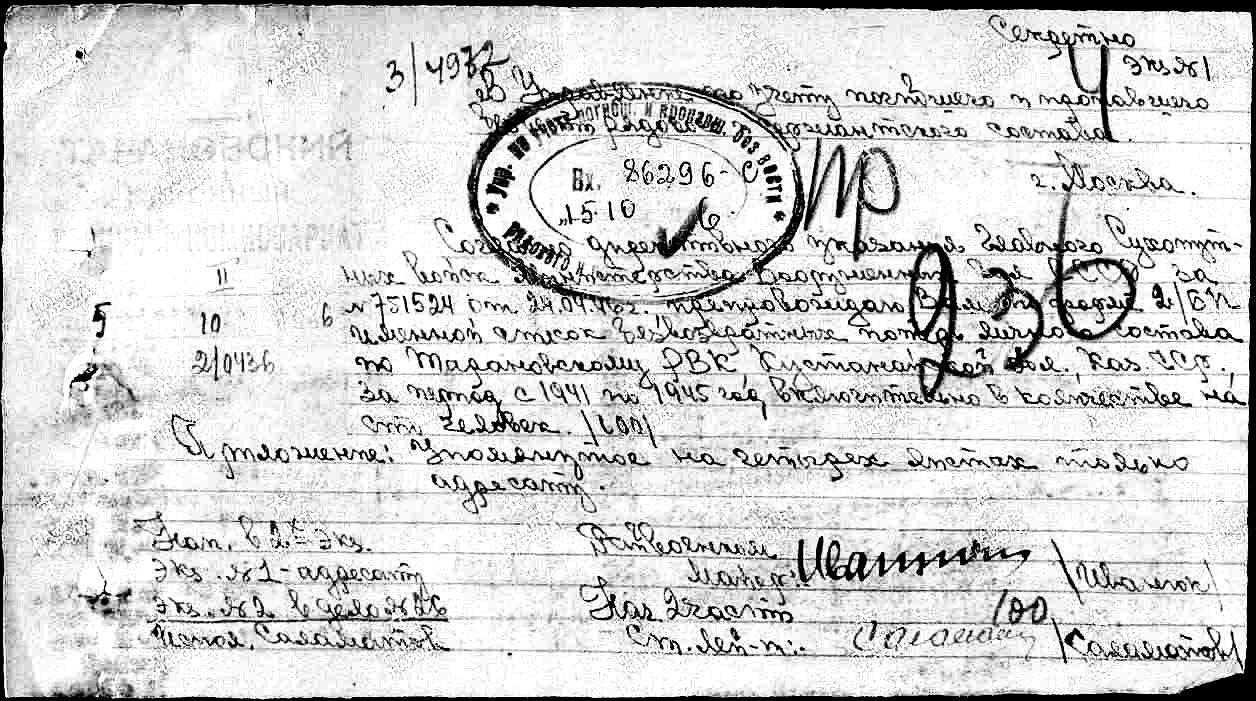 Секретно
Экз №1
3/4972
В Управление по учету погибшего и пропавшего
без вести рядового и сержантского состава.
г. Москва.
Упр. по учету погибш. и пропавш. без вести
рядового и
Вх. 86296-с
15 10
пр
236
Согласно директивного указания Главного Сухопут-
ных войск Министерства Вооруженных Сил СССР за
№ 751524 от 24.04.46г. препровождаю Вам по форме 2/БП
именной список безвозвратных потерь личного состава
по Тарановскому РВК, Кустанайской обл., Каз. ССР.,
за период с 1941 по 1945 год включительно в количестве на
сто человек. /100/
II
10
6
2/0436
Приложение: Упомянутое на четырех листах только
адресату.
Нап. в 2х экз.
Экз. №1 - адресату
Экз. №2 в дело №26
Испол. Саламатов
Райвоенком
Майор: /Иванюк/
Нач. 2 части
100
Ст. лей-т: /Саламатов/